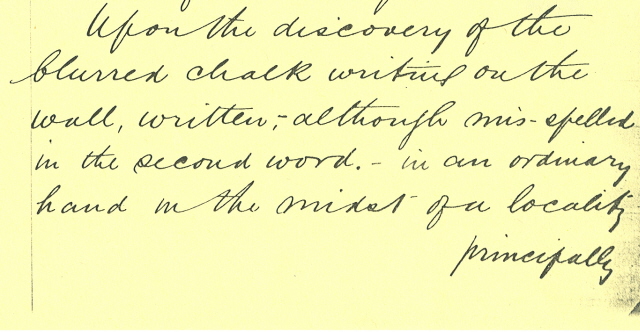 Upon the discovery of the
blurred chalk writing on the
wall, written,- although mis-spelled
in the second word.- in an ordinary
hand in the midst of a locality
principally